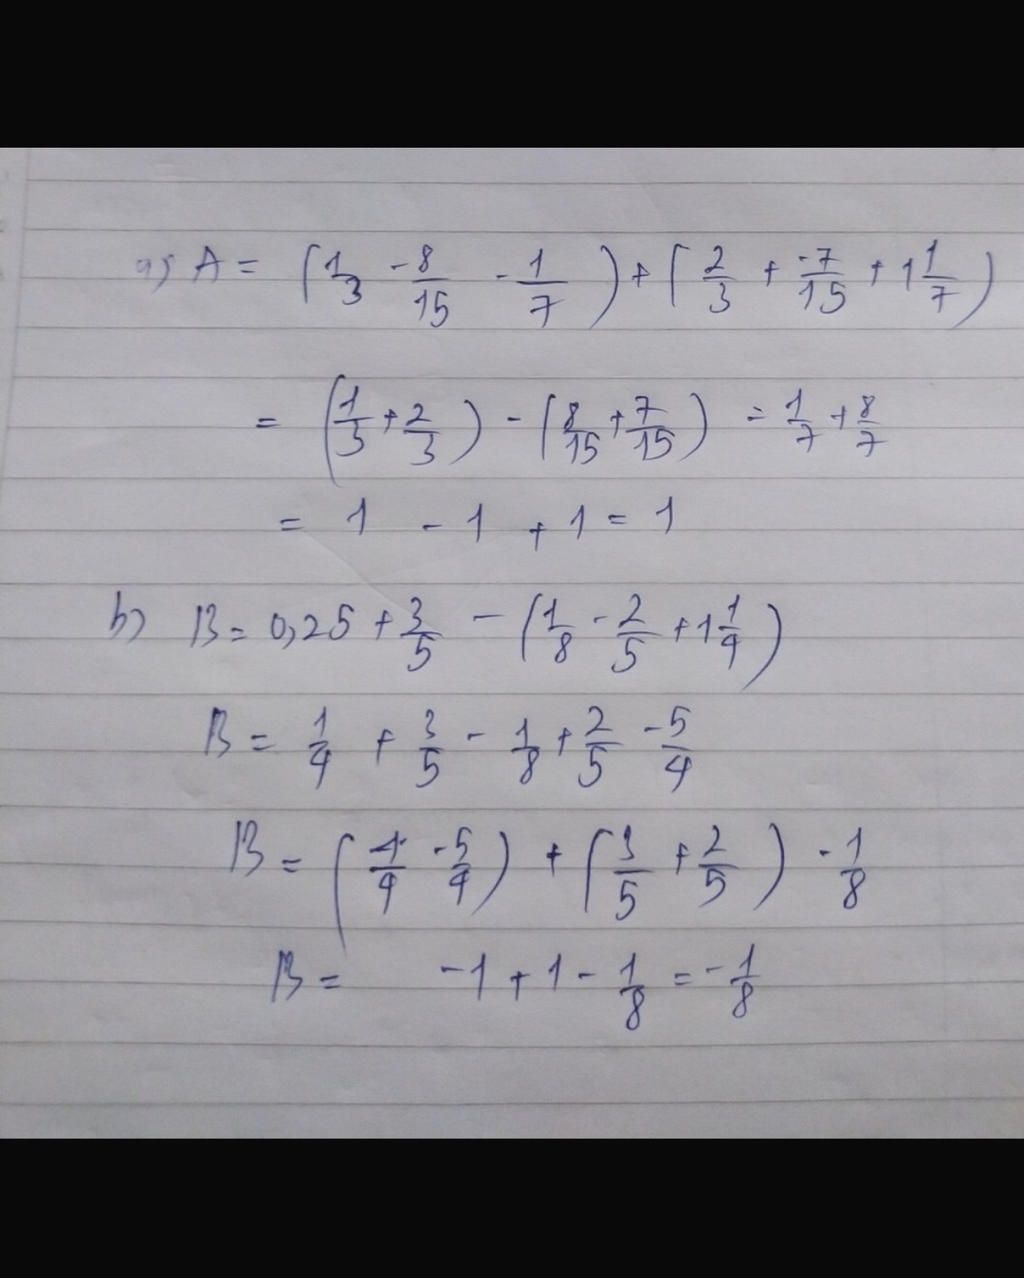 a) A = (1/3 - 8/15 - 1/7) + (2/3 + -7/15 + 1 1/7)
= (1/3 + 2/3) - (8/15 + 7/15) = 1/7 + 8/7
= 1 - 1 + 1 = 1
b) B = 0,25 + 3/5 - (1/8 - 2/5 + 1 1/4)
B = 1/4 + 3/5 - 1/8 + 2/5 - 5/4
B = (1/4 - 5/4) + (3/5 + 2/5) - 1/8
B = -1 + 1 - 1/8 = -1/8